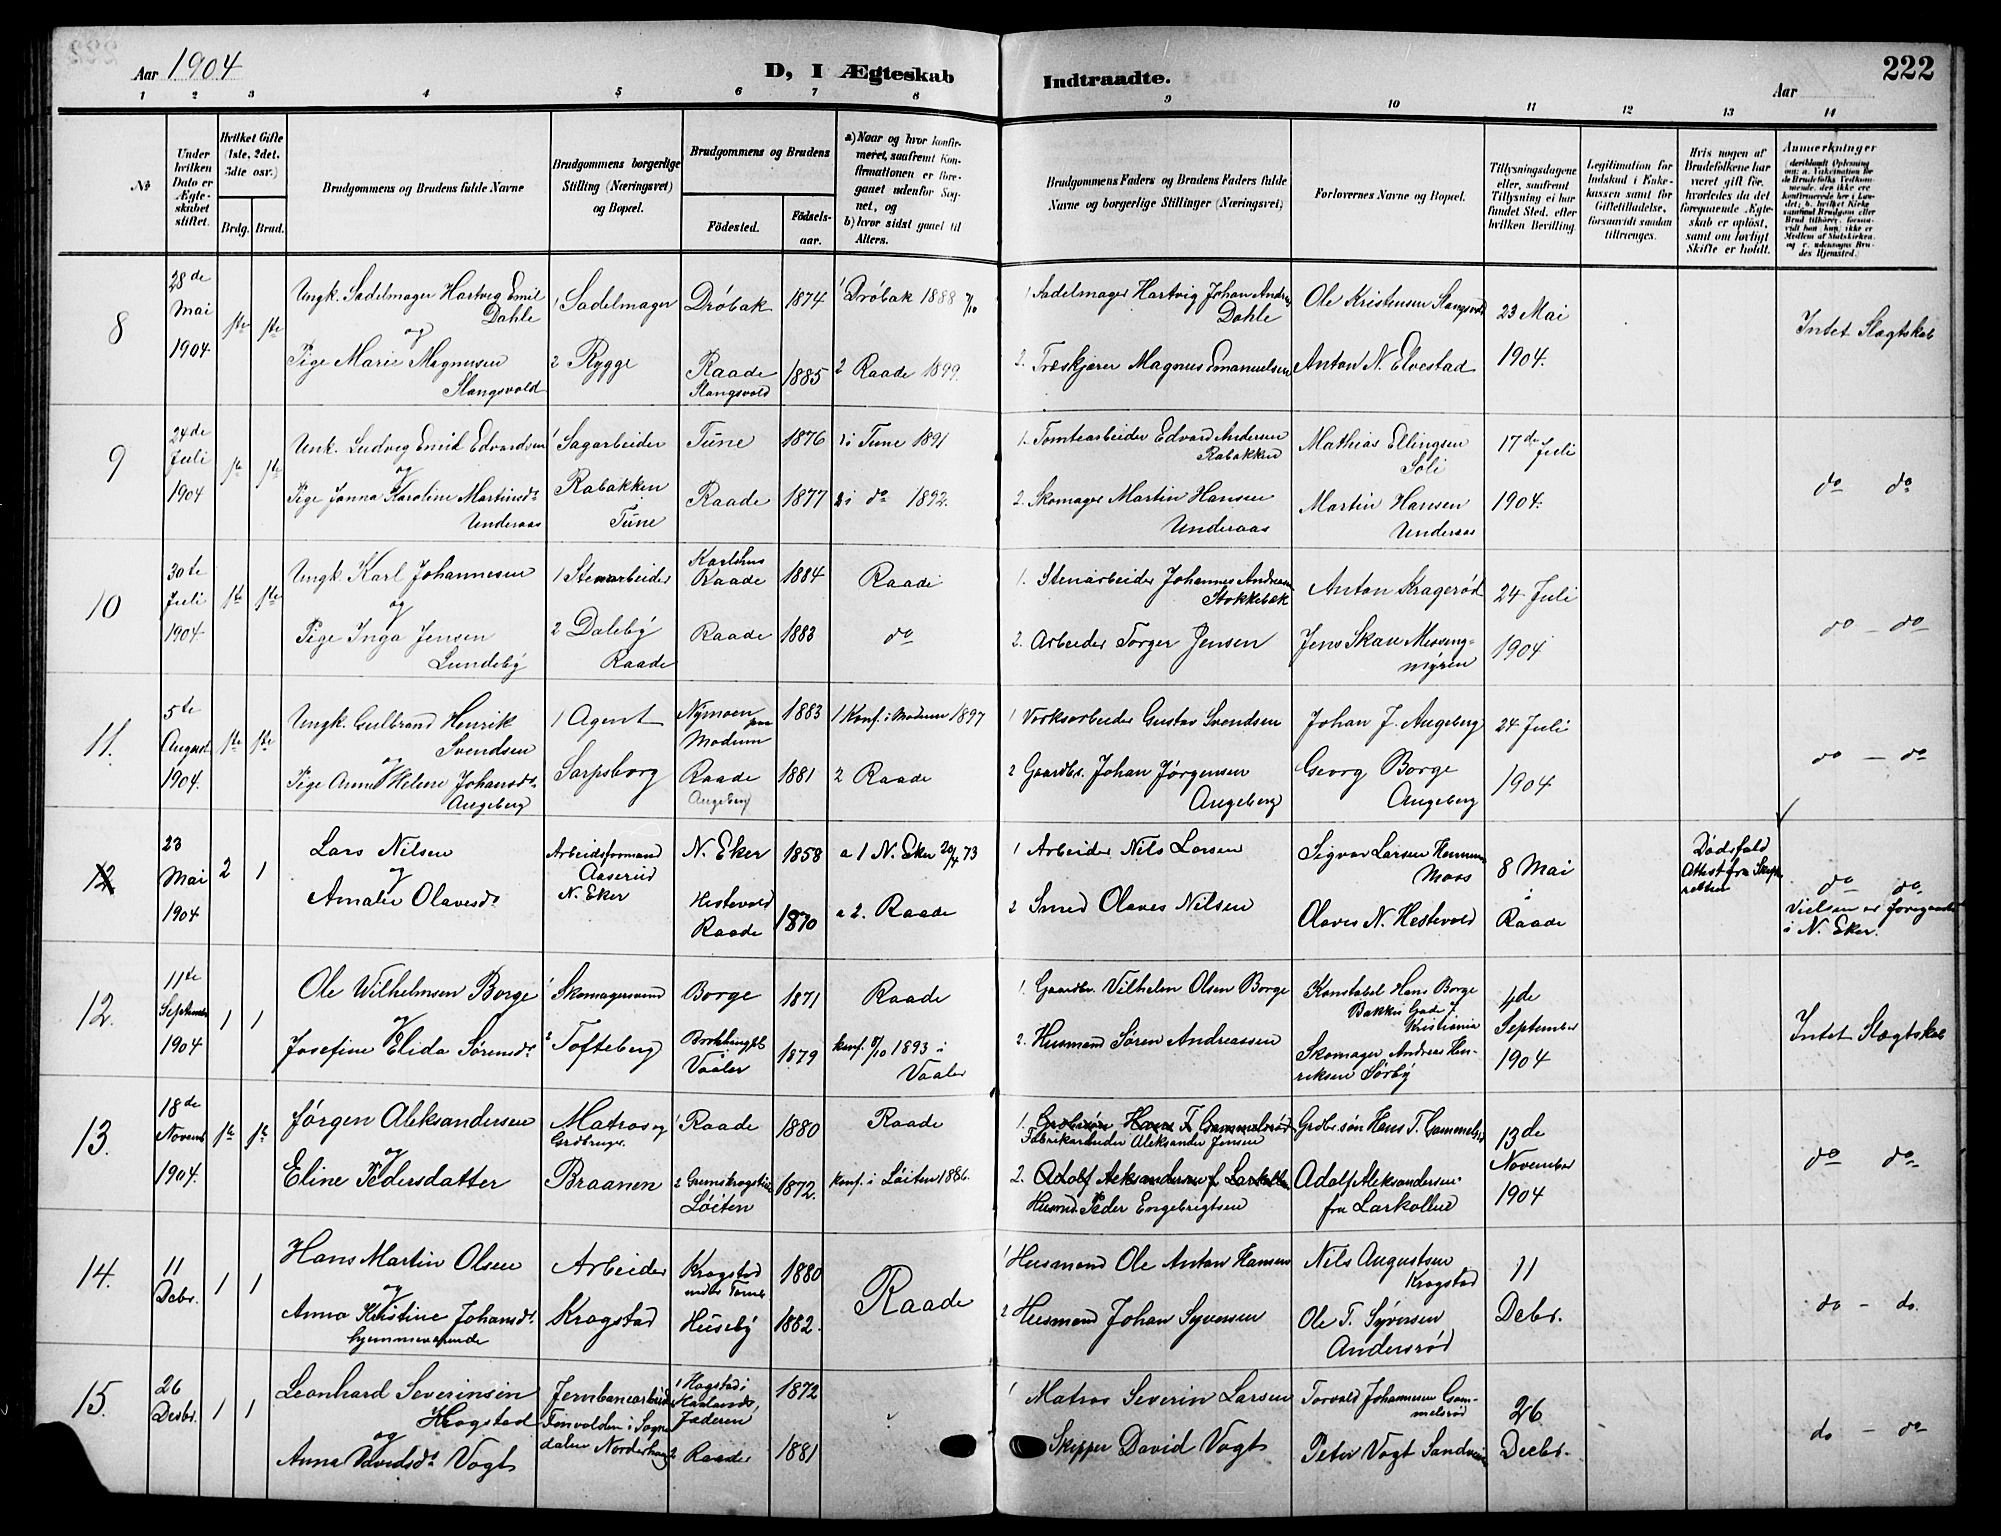 Aar 1904
D, I Ægteskab Indtraadte.
Aar
222
1 2 3 4 5 6 7 8 9 10 11 12 13 14
№
Under hvilken Dato er Ægteskabet stiftet.
Hvilket Gifte (1ste, 2det, 3dte osv.)
Brdg. Brud.
Brudgommens og Brudens fulde Navne
Brudgommens borgerlige Stilling (Næringsvei) og Bopæl.
Brudgommens og Brudens
Fødested. Fødselsaar.
a) Naar og hvor konfirmeret, saafremt Konfirmationen er foregaaet udenfor Sognet, og
b) hvor sidst gaaet til Alters.
Brudgommens Faders og Brudens Faders fulde Navne og borgerlige Stillinger (Næringsvei)
Forlovernes Navne og Bopæl.
Tillysningsdagene eller, saafremt Tillysning ei har fundet Sted, efter hvilken Bevilling.
Legitimation for Indskud i Enkekassen samt for Giftetilladelse, forsaavidt saadan tiltrænges.
Hvis nogen af Brudefolkene har været gift før, hvorledes da det foregaaende Ægteskab er opløst, samt om lovligt Skifte er holdt.
Anmerkninger
8
28de Mai 1904
1ste 1ste
Ungk. Sadelmager Hartvig Emil Dahle
og
Pige Marie Magnusen Slangsvold
1 Sadelmager
2 Rygge
Drøbak 1874
Raade Slangsvold 1885
1 Drøbak 1888 7/10
2 Raade 1899.
1 Sadelmager Hartvig Johan Andreas Dahle
2. Træskjærer Magnus Emanuelsen
Ole Kristensen Slangsvold
Anton N. Elvestad
23 Mai 1904.
Intet Slægtskab
9
24de Juli 1904
Unk. Ludvig Emil Edvardsen
og
Pige Janna Karoline Martinsdr Underaas
1 Sagarbeider
Rabakken Tune
Tune 1876
Raade 1877
1 i Tune 1891
2 i do 1892.
1. Tomtearbeider Edvard Andersen Rabakken
2. Skomager Martin Hansen Underaas
Mathias Ellingsen Soli
Martin Hansen Underaas
17de Juli 1904.
do do
10
30te Juli 1904
1ste 1ste
Ungk. Karl Johannesen
og
Pige Inga Jensen Lundeby
1 Stenarbeider
2 Daleby Raade
Karlshus Raade 1884
Raade 1883
Raade
do
1. Stenarbeider Johannes Andreasen Stokkebæk
2. Arbeider Torger Jensen
Anton Kragerød
Jens Skau
24 Juli 1904
do - do
11.
5te August 1904.
1ste 1ste
Ungk. Gulbrand Henrik Svendsen
og
Pige Anna Helene Johansdr Augeberg
1 Agent
Sarpsborg
Nymoen paa Modum 1883
Raade Augeberg 1881
1 Konf. i Modum 1897
2 Raade
1 Verksarbeider Gustav Svendsen
2 Gaardbr. Johan Jørgensen Augeberg
Johan J. Augeberg
Georg Borge Augeberg
24 Juli 1904
do - do
12
23 Mai 1904
2 1
Lars Nilsen
og
Amalie Olavesdr
Arbeidsformand Aaserud N. Eker
N. Eker 1858
Hestevold Raade 1870
a 1 N. Eker 20/4 73
a 2. Raade
1 Arbeider Nils Larsen
2 Smed Olaves Nilsen
Sigvar Larsen Moss
Olaves N. Hestevold
8 Mai i Raade
Dødsfald Attest fra Skifteretten
do do
Vielsen er foregaaet i N. Eker.
12.
11te September 1904
1 1
Ole Wilhelmsen Borge
og
Josefine Elida Sørensdr
1 Skomagersvend
2 Tofteberg
Borge 1871
Vaaler 1879
Raade
konf. 1/10 1893 i Vaaler
1. Gaardbr. Vilhelm Olsen Borge
2. Husmand Søren Andreassen
Konstabel Hans Borge Bakkes Gade 7 Kristiania
Skomager Andreas Henriksen Sørby
4de September 1904
Intet Slægtskab
13.
18de Novemb 1904
Jørgen Aleksandersen
og
Eline Pedersdatter
Matros og Grdbruger.
Braanen
1 Raade 1880
2 Løiten 1872.
Raade
konf. i Løiten 1886.
1. Grdbrsøn Hans T. Gammelsrød
Fabrikarbeider Aleksander Jensen
2. Adolf Aleksandersen f. Larkollen
Husmd Peder Engebrigtsen
Grdbr. søn Hans T. Gammelsrød
Adolf Aleksandersen fra Larkollen
13de November 1904
do do
14.
11 Decbr.
1 1
Hans Martin Olsen
og
Anna Kristine Johansdr
hjemmeværende
Arbeider
Kragstad
Kragstad 1880
Huseby 1882.
Raade
1 Husmand Ole Anton Hansen
2 Husmand Johan Syversen
Nils Augustsen Kragstad
Ole T. Syversen Andersrød
11 Decbr.
do - do.
15.
26 Decbr.
1 1
Leonhard Severinsen Hogstad
og
Anna Davidsdr Vogt
Jernbanearbeider
Norderhaug
1 Hogstad i Haalands, Jæderen 1872
2 Raade 1881
1 Matros Severin Larsen
Skipper David Vogt
Torvald Johannesen Gammelsrød
Peter Vogt Sandviken
26 Decbr.
do - do